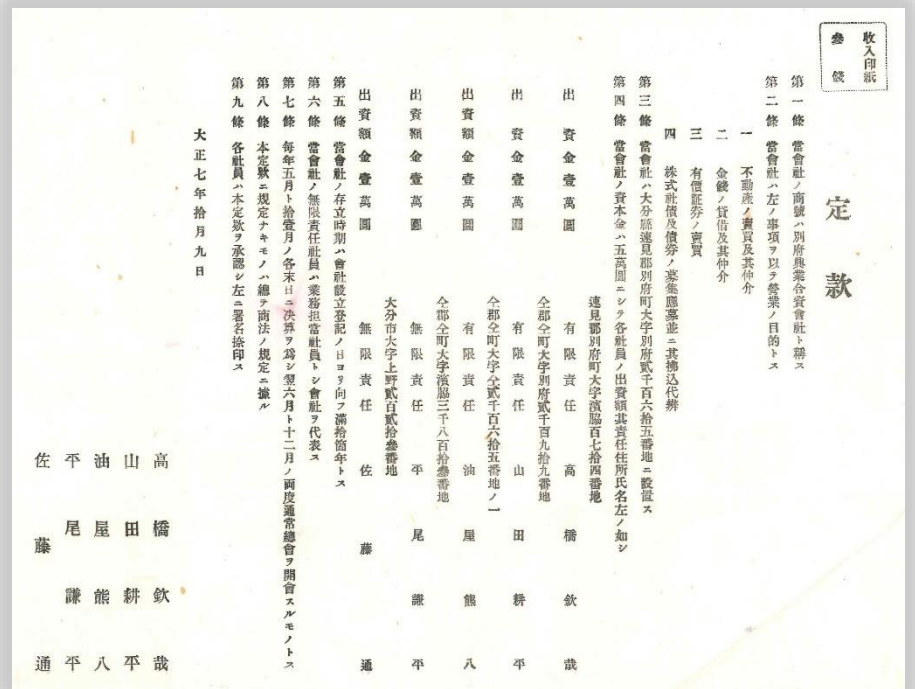 收入印紙
參錢
定款
第一條 當會社ノ商號ハ別府興業合資會社ト稱ス
第二條 當會社ハ左ノ事項ヲ以テ營業ノ目的トス
一 不動產ノ賣買及其仲介
二 金錢ノ貸借及其仲介
三 有價証券ノ賣買
四 株式社債及債券ノ募集應募並ニ其拂込代辨
第三條 當會社ハ大分縣速見郡別府町大字別府貳千百六拾五番地ニ設置ス
第四條 當會社ノ資本金ハ五萬圓ニシテ各社員ノ出資額其責任住所氏名左ノ如シ
速見郡別府町大字濱脇百七拾四番地
出資金壹萬圓 有限責任 高橋欽哉
仝郡仝町大字別府貳千百九拾九番地
出資額金壹萬圓 有限責任 山田耕平
仝郡仝町大字仝貳千百六拾五番地ノ一
出資額金壹萬圓 有限責任 油屋熊八
仝郡仝町大字濱脇三千八百拾參番地
出資額金壹萬圓 無限責任 平尾謙平
大分市大字上野貳百貳拾參番地
出資額金壹萬圓 無限責任 佐藤通
第五條 當會社ノ存立時期ハ會社設立登記ノ日ヨリ向フ滿拾箇年トス
第六條 當會社ノ無限責任社員ハ業務担當社員トシ會社ヲ代表ス
第七條 每年五月ト拾壹月ノ各末日ニ決算ヲ爲シ翌六月ト十二月ノ兩度通常總會ヲ開會スルモノトス
第八條 本定欵ニ規定ナキモノハ總テ商法ノ規定ニ據ル
第九條 各社員ハ本定欵ヲ承認シ左ニ署名捺印ス
大正七年拾月九日
高橋欽哉
山田耕平
油屋熊八
平尾謙平
佐藤通